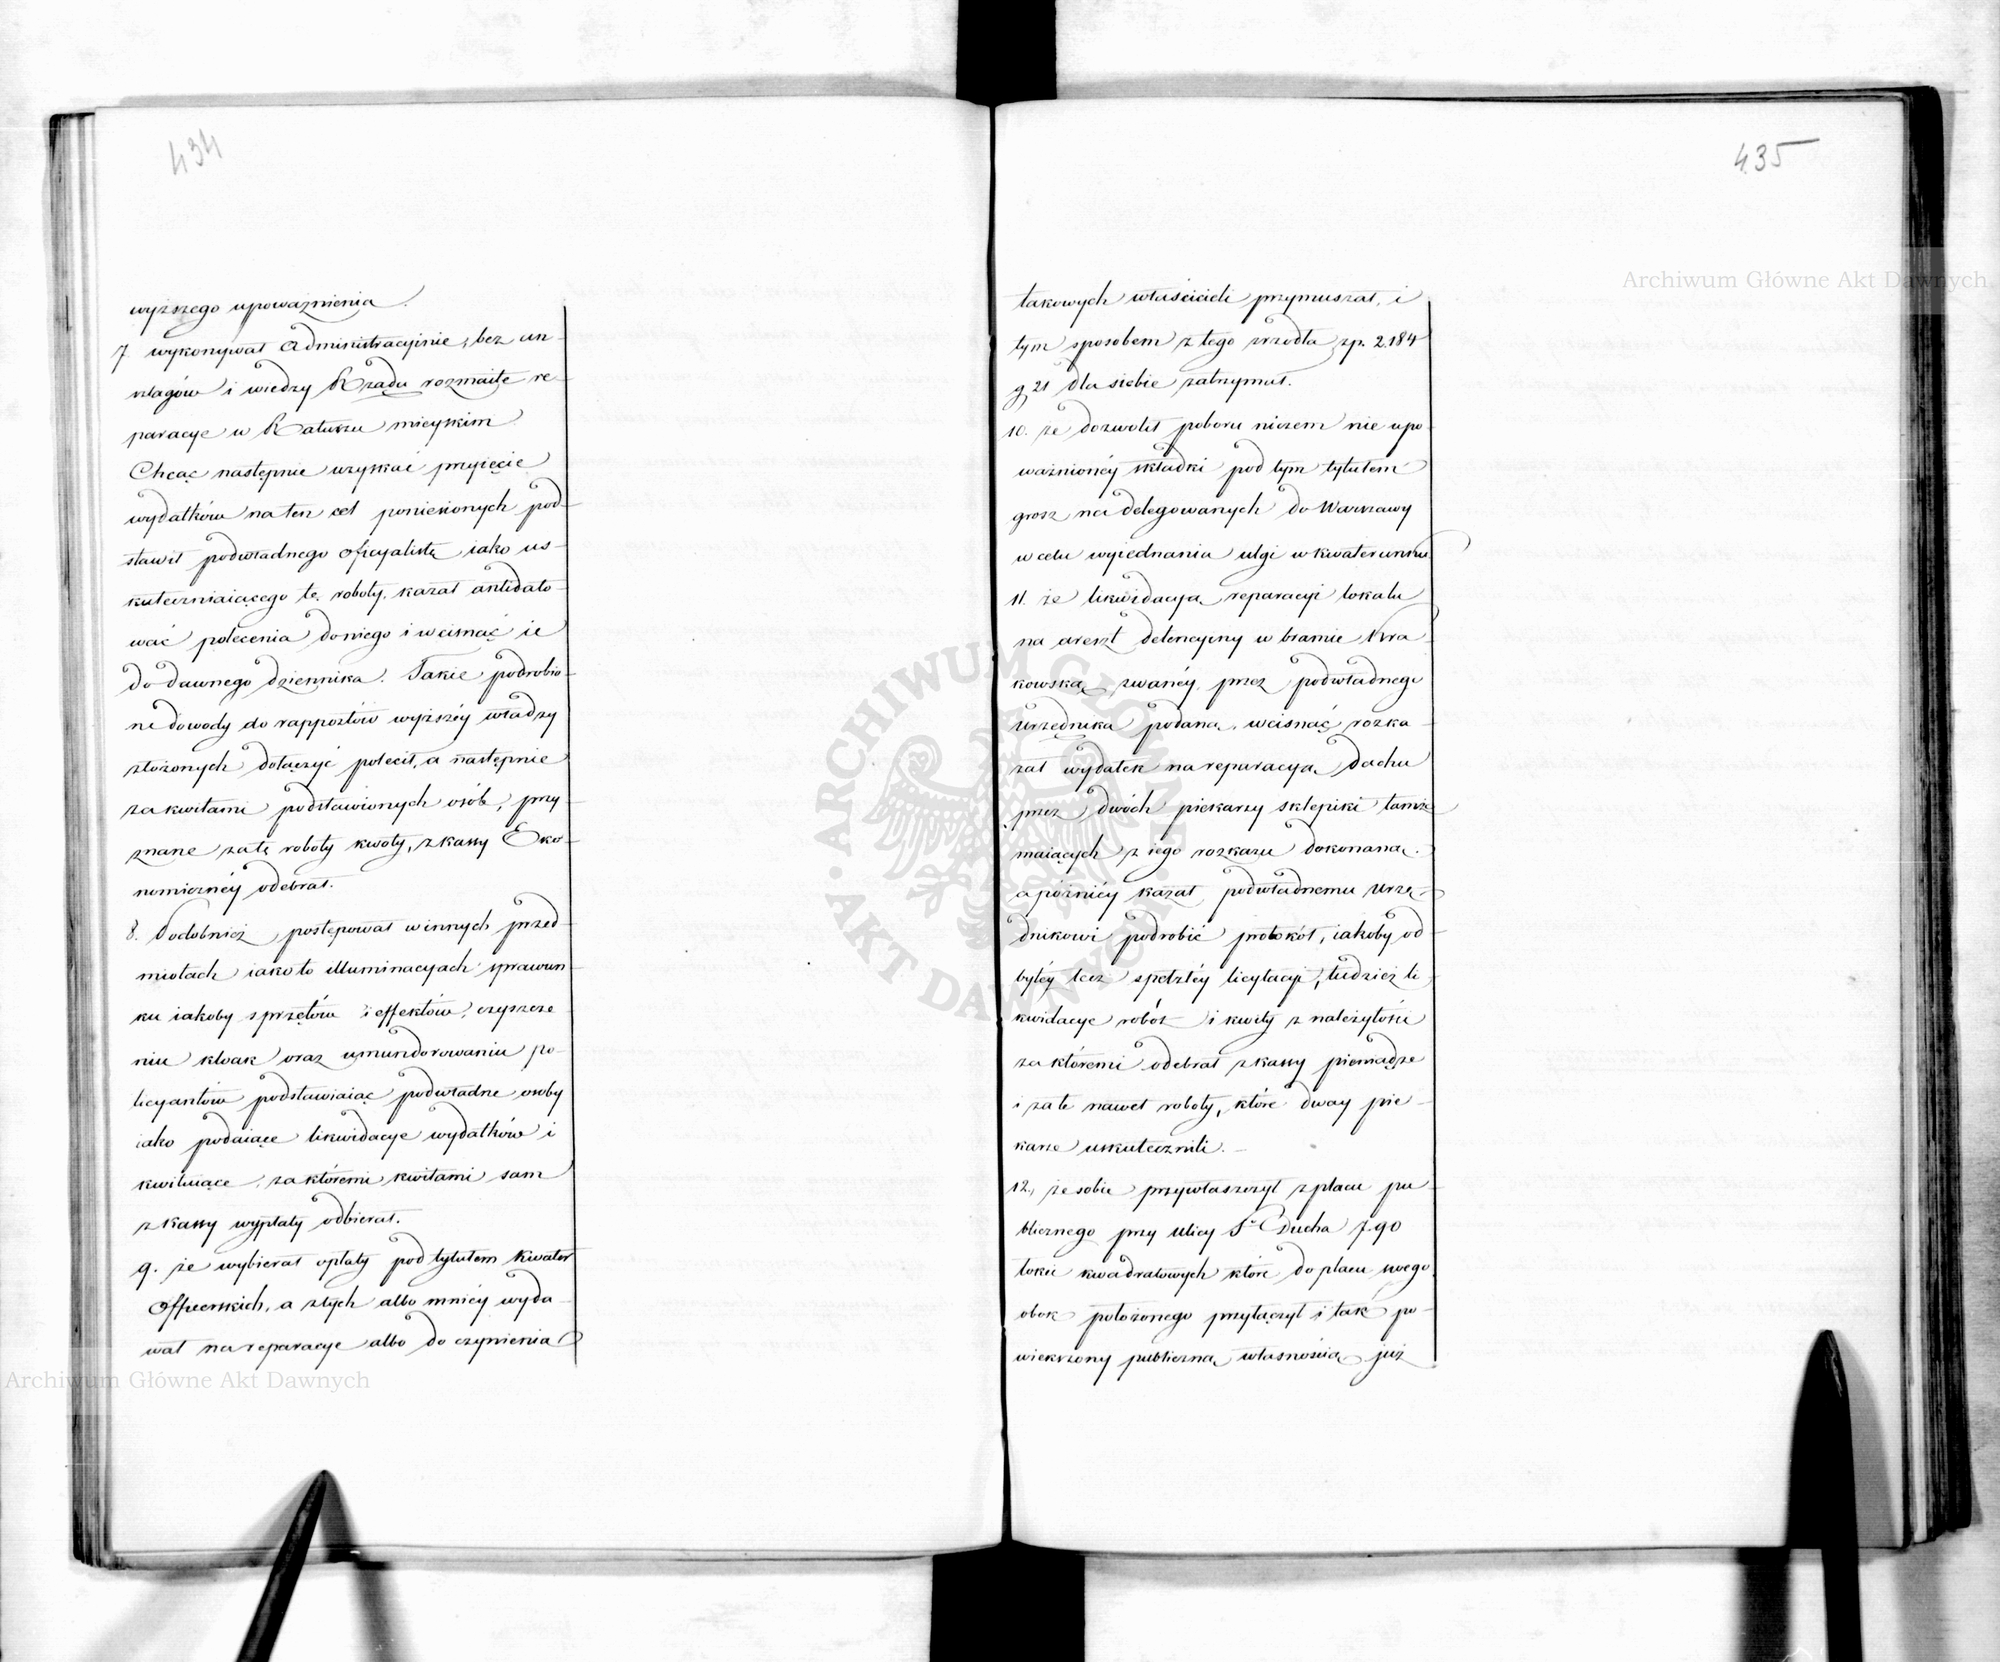 434
wyższego upoważnienia.
7. wykonywał administracyinie, bez an-
szlagów i wiedzy Rządu rozmaite re-
paracye w Ratuszu mieyskim
Chcąc następnie uzyskać przyięcie
wydatków na ten cel poniesionych pod-
stawił podwładnego officyalistę iako us-
kuteczniaiącego te roboty, kazał antidato-
wać polecenia do niego i wcisnąć ie
do dawnego dziennika. Takie podrobio-
ne dowody do rapportów wyższéy władzy
złożonych dołączyć polecił, a następnie
za kwitami podstawionych osób, przy-
znane za te roboty kwoty, z kassy Eko-
nomicznéy odebrał.
8. Podobnież postępował w innych przed-
miotach iako to illuminacyach sprawun-
ku iakoby sprzętów i effektów, czyszcze
niu kloak oraz umundorowaniu po-
licyantów podstawiaiąc podwładne osoby
iako podaiące likwidacye wydatków i
kwituiące, za któremi kwitami sam
z kassy wypłaty odbierał.
9. że wybierał opłaty pod tytułem kwater
Officerskich, a z tych albo mniéy wyda-
wał na reparacye albo do czynienia
435
takowych właścicieli przymuszał, i
tym sposobem z tego źrzodła zp. 2.184
g 21 dla siebie zatrzymał.
10. że dozwolił poboru niczem nie upo-
ważnionéy składki pod tym tytułem
grosz na delegowanych do Warszawy
w celu wyiednania ulgi w kwaterunku
11. że likwidacyą reparacyi lokalu
na areszt detencyiny w bramie Kra-
kowską zwanéy, przez podwładnego
Urzędnika podaną, wcisnąć rozka-
zał wydatek na reparacyą dachu
przez dwóch piekarzy sklepiki tamże
maiących z iego rozkazu dokonaną.
a późniéy kazał podwładnemu Urzę-
dnikowi podrobić protokół, iakoby od-
bytéy lecz spełzłéy licytacyi, tudzież li-
kwidacye robót i kwity z należytości
za któremi odebrał z kassy pieniądze
i za te nawet roboty, które dway pie-
karze uskutecznili. -
12, że sobie przywłaszczył z placu pu-
blicznego przy ulicy Sgo Ducha 7.90
łokci kwadratowych które do placu swego
obok położonego przyłączył i tak po-
wiekszony publiczną własnością już
Archiwum Główne Akt Dawnych
Archiwum Główne Akt Dawnych
ARCHIWUM GŁÓWNE • AKT DAWNYCH •